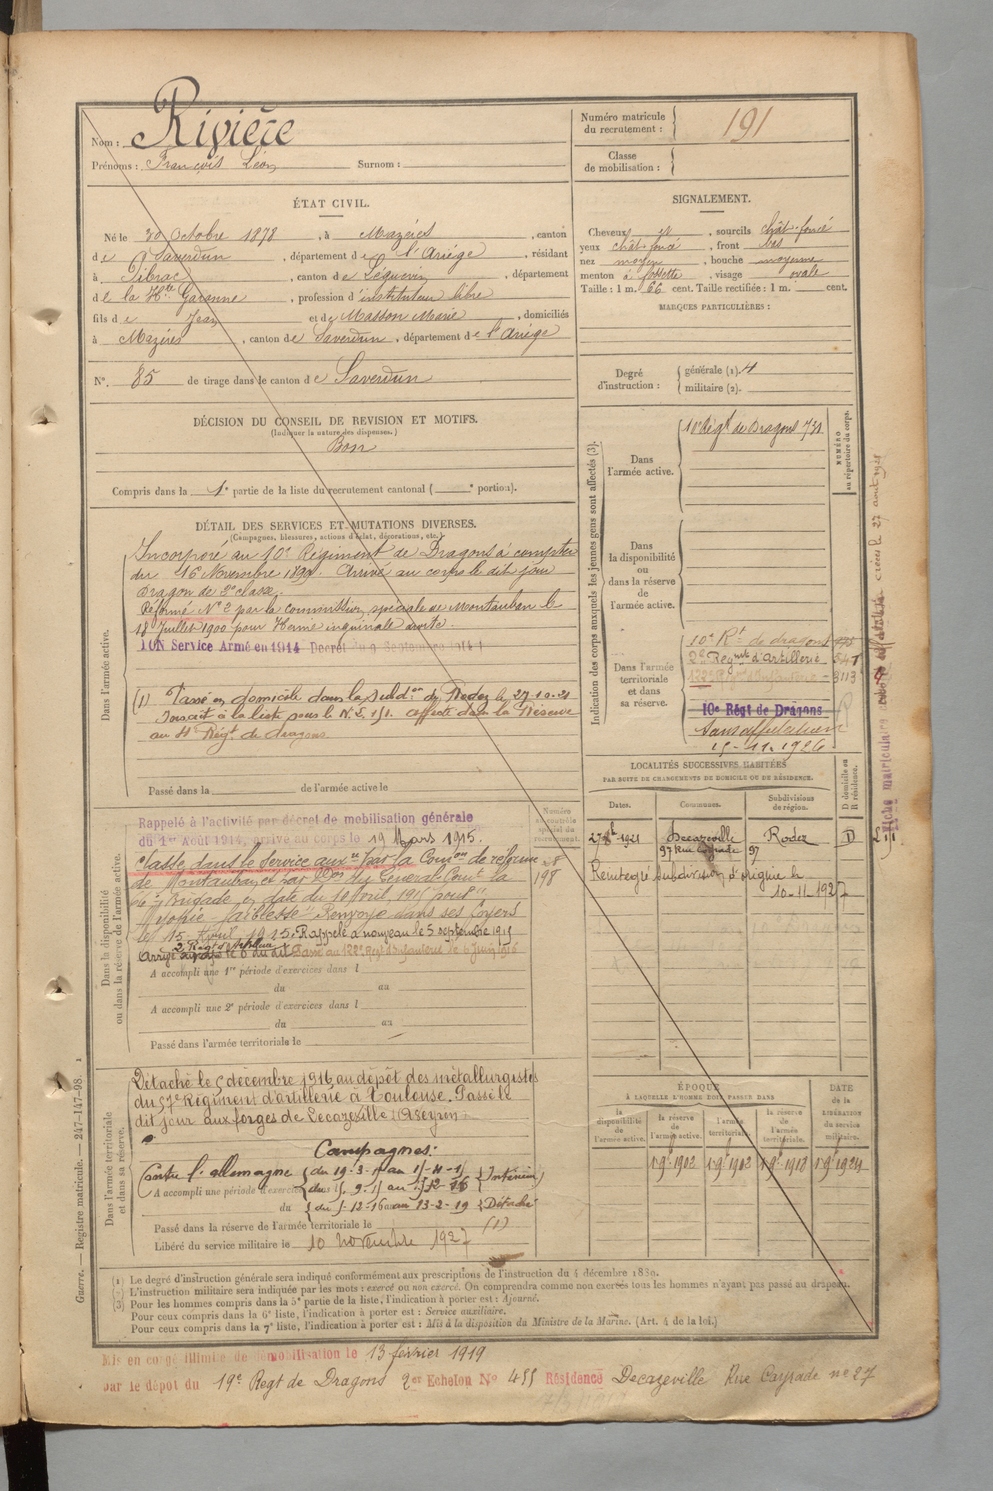 Nom : Rivière
Prénoms : François Léon Surnom :
Numéro matricule du recrutement : 191
Classe de mobilisation :
ÉTAT CIVIL.
Né le 30 Octobre 1878, à Mazères, canton
de Saverdun, département de l'Ariège, résidant
à Pibrac, canton de Léguevin, département
de la Hte Garonne, profession d'instituteur libre
fils de Jean et de Masson Marie, domiciliés
à Mazères, canton de Saverdun, département de l'Ariège
N°. 85 de tirage dans le canton de Saverdun
SIGNALEMENT.
Cheveux et, sourcils chât. foncé
yeux chât. foncé, front bas
nez moyen, bouche moyenne
menton à fossette, visage ovale
Taille : 1 m. 66 cent. Taille rectifiée : 1 m. cent.
MARQUES PARTICULIÈRES :
Degré d'instruction : générale (1). 4
militaire (2).
DÉCISION DU CONSEIL DE REVISION ET MOTIFS.
(Indiquer la nature des dispenses.)
Bon
Compris dans la 1e partie de la liste du recrutement cantonal ( e portion).
DÉTAIL DES SERVICES ET MUTATIONS DIVERSES.
(Campagnes, blessures, actions d'éclat, décorations, etc.)
Dans l'armée active.
Incorporé au 10e Régiment de Dragons à compter
du 16 Novembre 1899. Arrivé au corps le dit jour
Dragon de 2e classe.
Réformé N° 2 par la commission spéciale de Montauban le
18 Juillet 1900 pour Hernie inguinale droite.
ION Service Armé en 1914 Décret du 9 Septembre 1914
(1) Passé en domicile dans la subdon de Rodez le 27-10-21
Inscrit à la liste sous le N° affecté dans la Réserve
au Régt de dragons
Passé dans la de l'armée active le
Indication des corps auxquels les jeunes gens sont affectés (3).
NUMÉRO au répertoire du corps.
Dans l'armée active.
10e Régt de Dragons 731
Dans la disponibilité ou dans la réserve de l'armée active.
Dans l'armée territoriale et dans sa réserve.
10e Rt de dragons
2e Regmt d'Artillerie - 547
122e Regt d'Infanterie - 3113
10e Régt de Dragons
Sans affectation
15-11-1926
LOCALITÉS SUCCESSIVES HABITÉES
PAR SUITE DE CHANGEMENTS DE DOMICILE OU DE RÉSIDENCE.
Dates. Communes. Subdivisions de région. D domicile ou R résidence.
27 8bre 1921 Decazeville Rodez D
97 Rue Cayrade 97
Réintégré subdivision d'origine le
10-11-1927
Dans la disponibilité ou dans la réserve de l'armée active.
Numéro au contrôle spécial du recrutement.
Rappelé à l'activité par décret de mobilisation générale
du 1er Août 1914, arrivé au corps le 19 Mars 1915.
Classé dans le Service auxre par la Comon de réforme
de Montauban et par Mr le Général Comt la
Brigade en date du 10 Avril 1915 pour
"Myopie - faiblesse" Renvoyé dans ses foyers
le 15 Avril 1915. Rappelé à nouveau le 5 septembre 1915
2e Régt d'Artillerie
Arrivé au corps le 6 du dit Passé au 122e Regt d'Infanterie le 6 Juin 1916
A accompli une 1re période d'exercices dans l
du au
A accompli une 2e période d'exercices dans l
du au
Passé dans l'armée territoriale le
Dans l'armée territoriale et dans sa réserve.
Détaché le 5 décembre 1916 au dépôt des métallurgistes
du 57e Régiment d'artillerie à Toulouse. Passé le
dit jour aux forges de Decazeville (Aveyron)
Campagnes :
Contre l'Allemagne du 19-3-15 au Intérieur
A accompli une période d'exercices
du 5-12-16 au 13-2-19 Détaché
Passé dans la réserve de l'armée territoriale le (1)
Libéré du service militaire le 10 novembre 1927
ÉPOQUE
À LAQUELLE L'HOMME DOIT PASSER DANS
la disponibilité de l'armée active. la réserve de l'armée active. l'armée territoriale. la réserve de l'armée territoriale.
DATE de la LIBÉRATION du service militaire.
1 9bre 1902 1 9bre 1912 1 9bre 1918 1 9bre 1924
(1) Le degré d'instruction générale sera indiqué conformément aux prescriptions de l'instruction du 4 décembre 1889.
(2) L'instruction militaire sera indiquée par les mots : exercé ou non exercé. On comprendra comme non exercés tous les hommes n'ayant pas passé au drapeau.
(3) Pour les hommes compris dans la 5e partie de la liste, l'indication à porter est : Ajourné.
Pour ceux compris dans la 6e liste, l'indication à porter est : Service auxiliaire.
Pour ceux compris dans la 7e liste, l'indication à porter est : Mis à la disposition du Ministre de la Marine. (Art. 4 de la loi.)
Mis en congé illimité de démobilisation le 13 février 1919
par le dépôt du 19e Regt de Dragons 2er Echelon N° 455 Résidence Decazeville Rue Cayrade n° 27
Guerre. — Registre matricule. — 247-147-98.
Fiche matriculaire créée le 27 août 1921